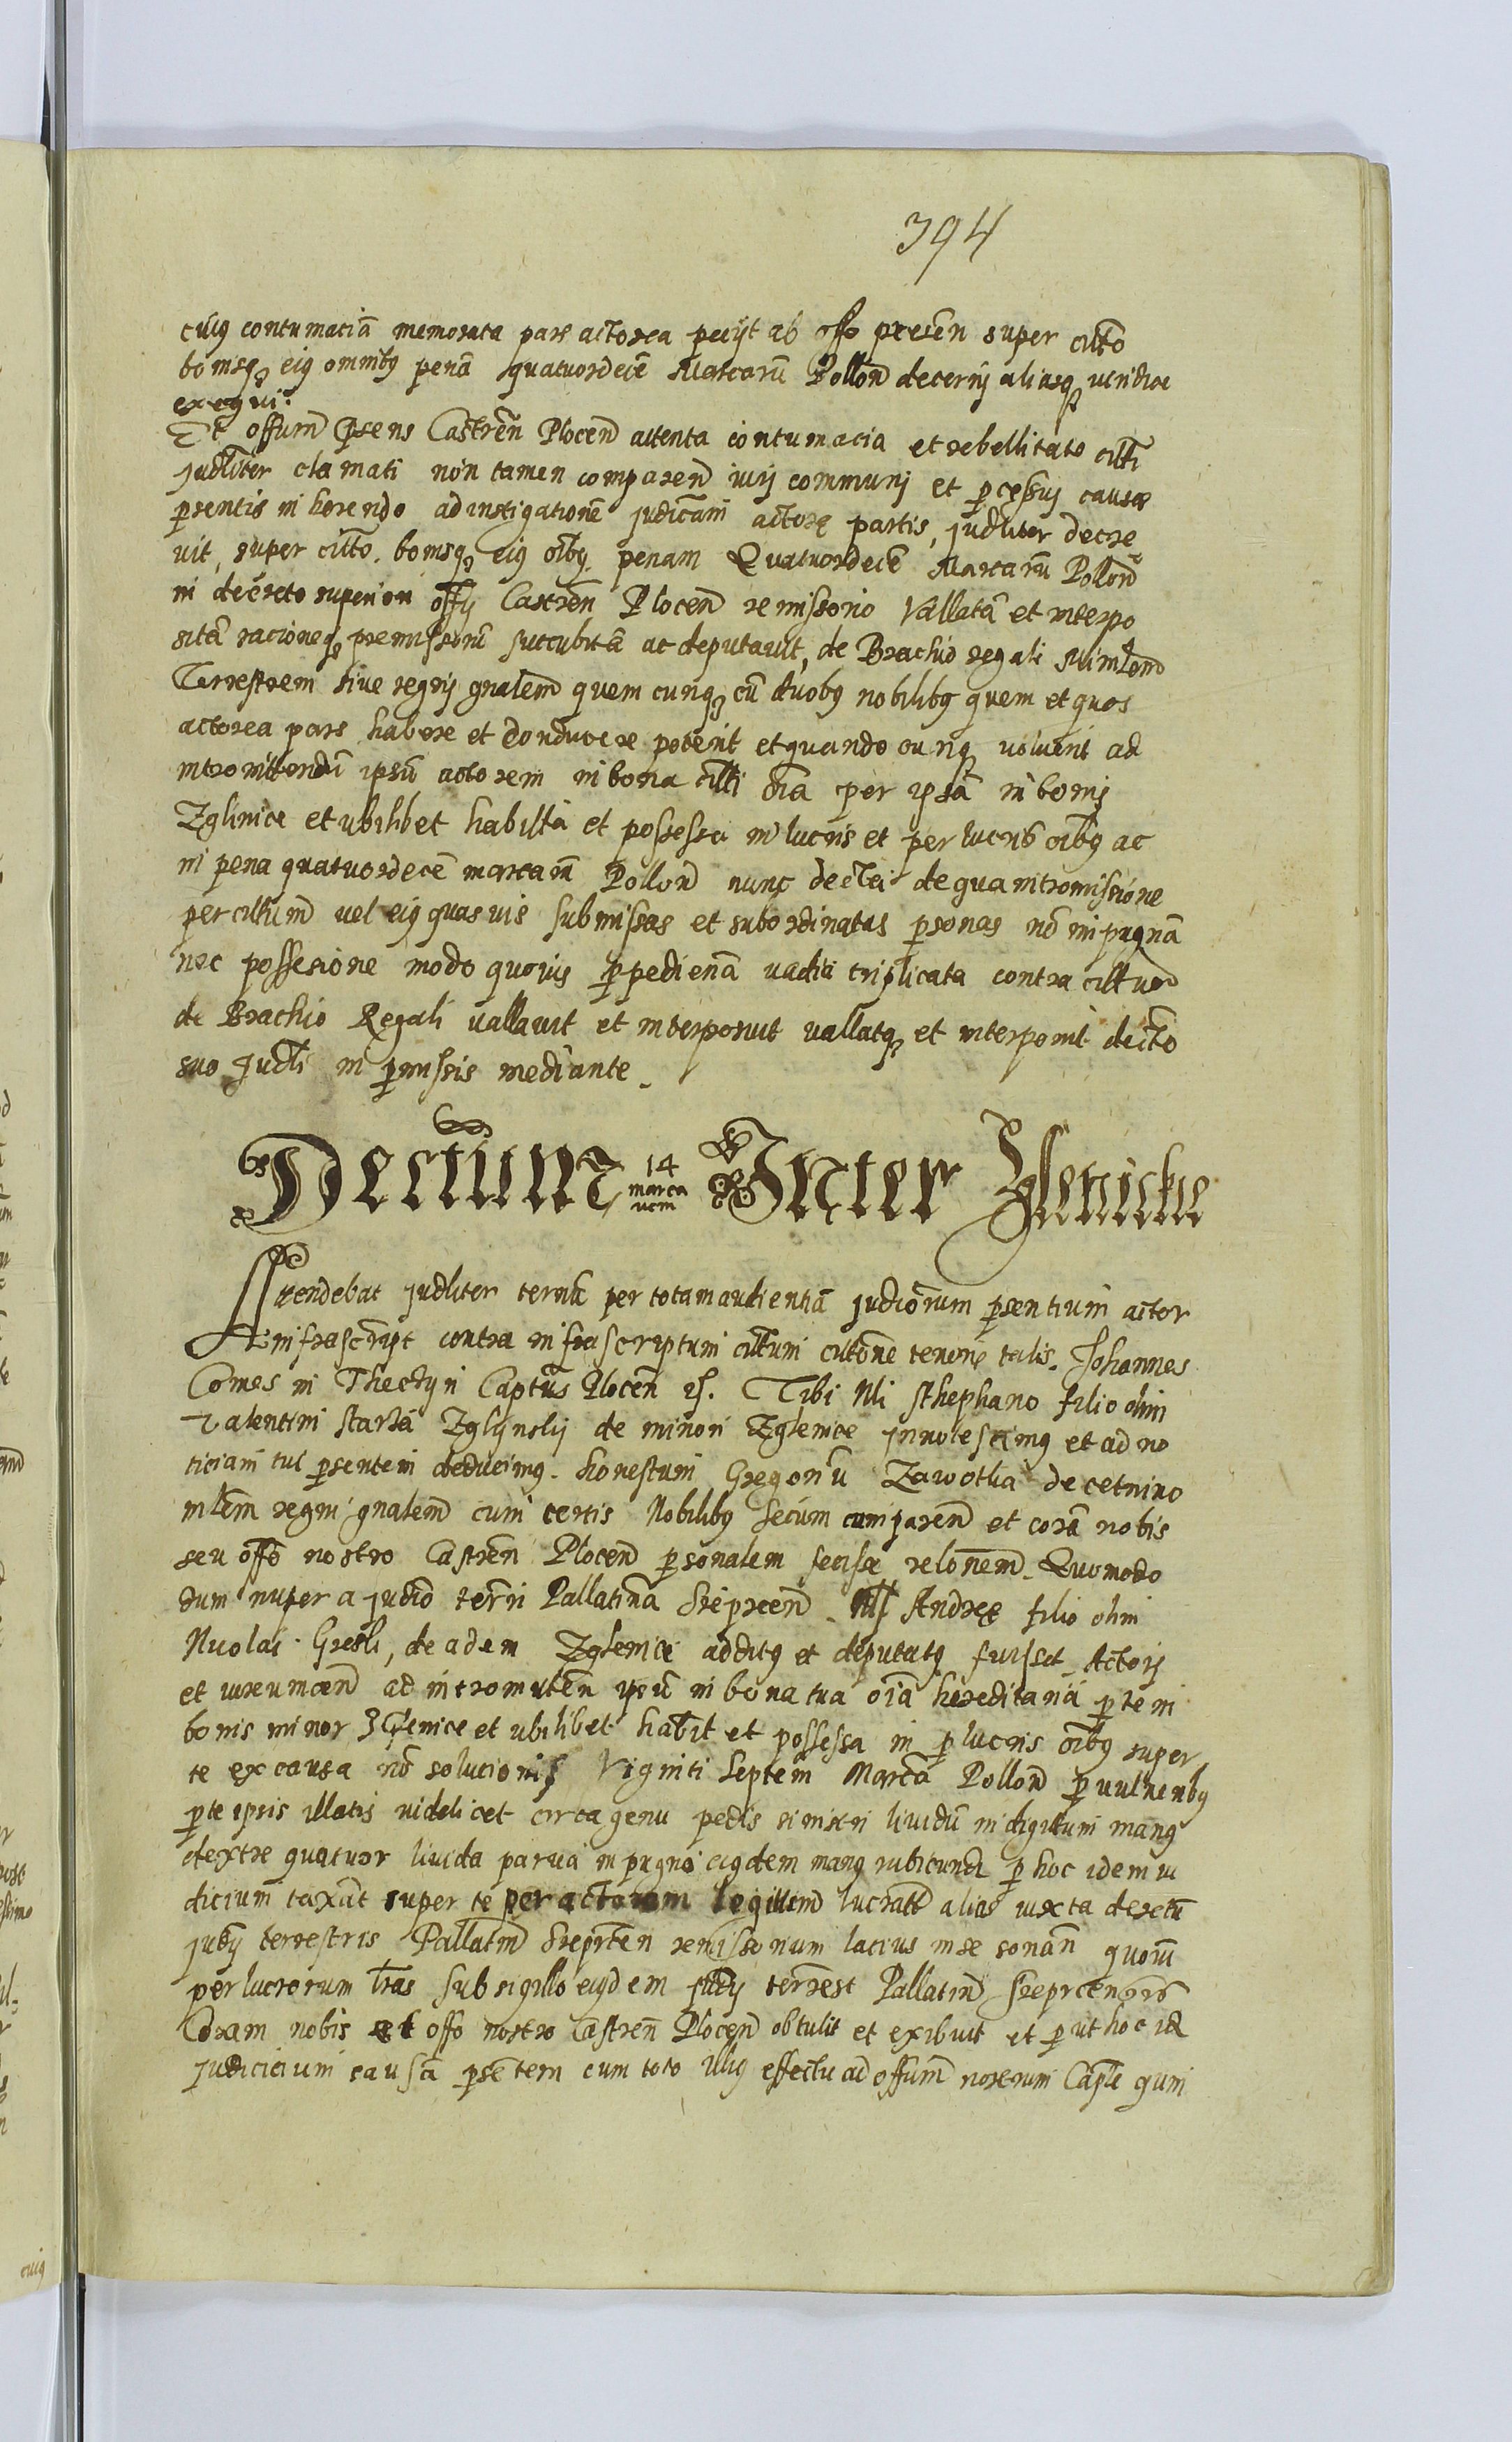 394
cuiq contumaciā memorata pars actorea petijt ab offo presen super citto
bonisq eiq omnibq penā quatuordecē Marcarū Pollon decerni aliasq iuridice
exequi.
Et offum psens Castren Plocen attenta contumacia et rebellitate citti
judliter clamati non tamen comparen iuri communj et pcessuj causae
psentis inherendo ad instigationē judicam actoree partis, judliter decre
vit, super citto. bonisq eiq oibq. penam Quatuordecē Marcarū Pollon
in decreto superiori offij Castren Plocen remissorio Vallatā et interpo
sitā racioneq premissorū succubitā ac deputavit, de Brachio regali Minlem
Terrestrem sive regnj gnalem quem cunq cū duobq nobilibq quem et quos
actorea pars habere et conducere poterit et quando cunq voluerit ad
intromittendū ipsū actorem in bona citti oia per ipsū in bonis
Zglinice et ubilibet habita et possessa in lucris et perlucris oibq ac
in pena quatuordecē marcarū Pollon nunc decta de qua intromissione
per cittum vel eiq quasvis submissas et subordinatas psonas nō inpugnā
nec possesione modo quovis ppedienā vadia triplicata contra cittum
de Brachio Regali vallavit et interposuit vallatq et interponit decto
suo Judli in pmissis mediante.
Dectum 14 marca rum Inter Zglenickie
Attendebat judliter ternū per totam audientiā judiorum psentium actor
infrascript contra infrascriptum cittum cittone tenoris talis. Johannes
Comes in Theczyn Captus Plocen rs. Tibi Nli Sthephano filio olim
Valentini Starsā Zglynskj de minori Zglenice jnnotescimq et ad no
ticiam tui psentem deducimq. honestum Gregoriū Zawotka de cetnino
mlem regni gnalem cum certis Nobilibq secum cumparen et corā nobis
seu offo nostro Castren Plocen psonalem fecisse relonem. Quomodo
dum nuper a judio terri Pallatina Srzeprcen. Nlis Andree filio olim
Nicolai Gresli, de adem Zglenice additq et deputatq fuisset. Actorj
et iureumcen ad intromitten ipsū in bona tua oia hereditaria p te in
bonis minor Zglenice et ubilibet habit et possessa in plucris oibq super
te ex causa nō solucionis Viginti septem Marca Pollon p vulneribq
p te ipsis illatis videlicet circa genu pedis sinistri lividū in digitum manq
dextre quatuor livida parva in pugno eiqdem manq rubicund p hoc idem iu
dicium taxat super te per actorem legitime lucrat alias iuxta decretū
judij terrestris Pallatin Srzeprcen remissorium latius in se sonān quorū
perlucrorum lras sub sigillo eiqdem judij terrest Pallatin Srzeprcensis
Coram nobis et offo nostro Castren Plocen obtulit et exibuit et p ut hoc id
judicicium causā psentem cum toto illiq effectu ad offum nostrum Caple qum